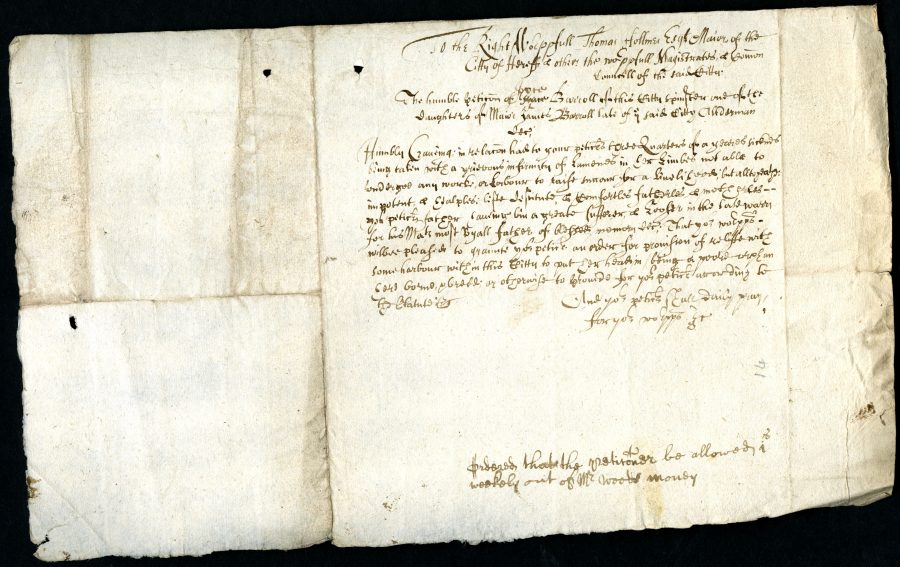 To the Right Wo:ppfull Thomas Hollmes Esqr Maior of the
Citty of Hereff & others the wo:ppfull Magistrates & Comon
Councell of the said Citty
Joyce
The humble Peticon of Grace Barroll of this Citty spinster one of the
daughters of Maior James Barroll late of ye said Citty Alderman
decd
Humbly Craveing in relacon had to your peticrs three Quarters of a yeares sicknes
being taken with a grievous infirmity of lamenes in her Limbes not able to
undergoe any worke or labour to raise succour for a livelihood but alltogeather
impotent & healples left destitute & Comfortles fatherles & motherles
yor peticrs father haveing bin a greate sufferer & looser in the late warrs
for his Mats most Royall father of blessed memory &c That yor wo:pps
wilbe pleased to graunte yor peticr an order for provision of reliffe with
some harbour within this Citty to put her head in being a poore orphan
here borne & breede or otherwise to provide for yor peticr according to
the Statute &c
And yor peticr shall daily pray
for yor wo:pps &c
14
Ordered that the Petitioner be allowed 1s
weekely out of Mr Woods money